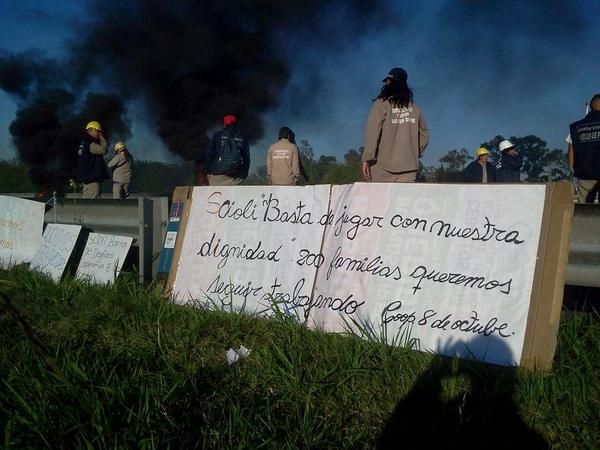 Scioli "Basta de jugar con nuestra
dignidad". 200 familias queremos
seguir trabajando Coop 8 de octubre.
BASTA